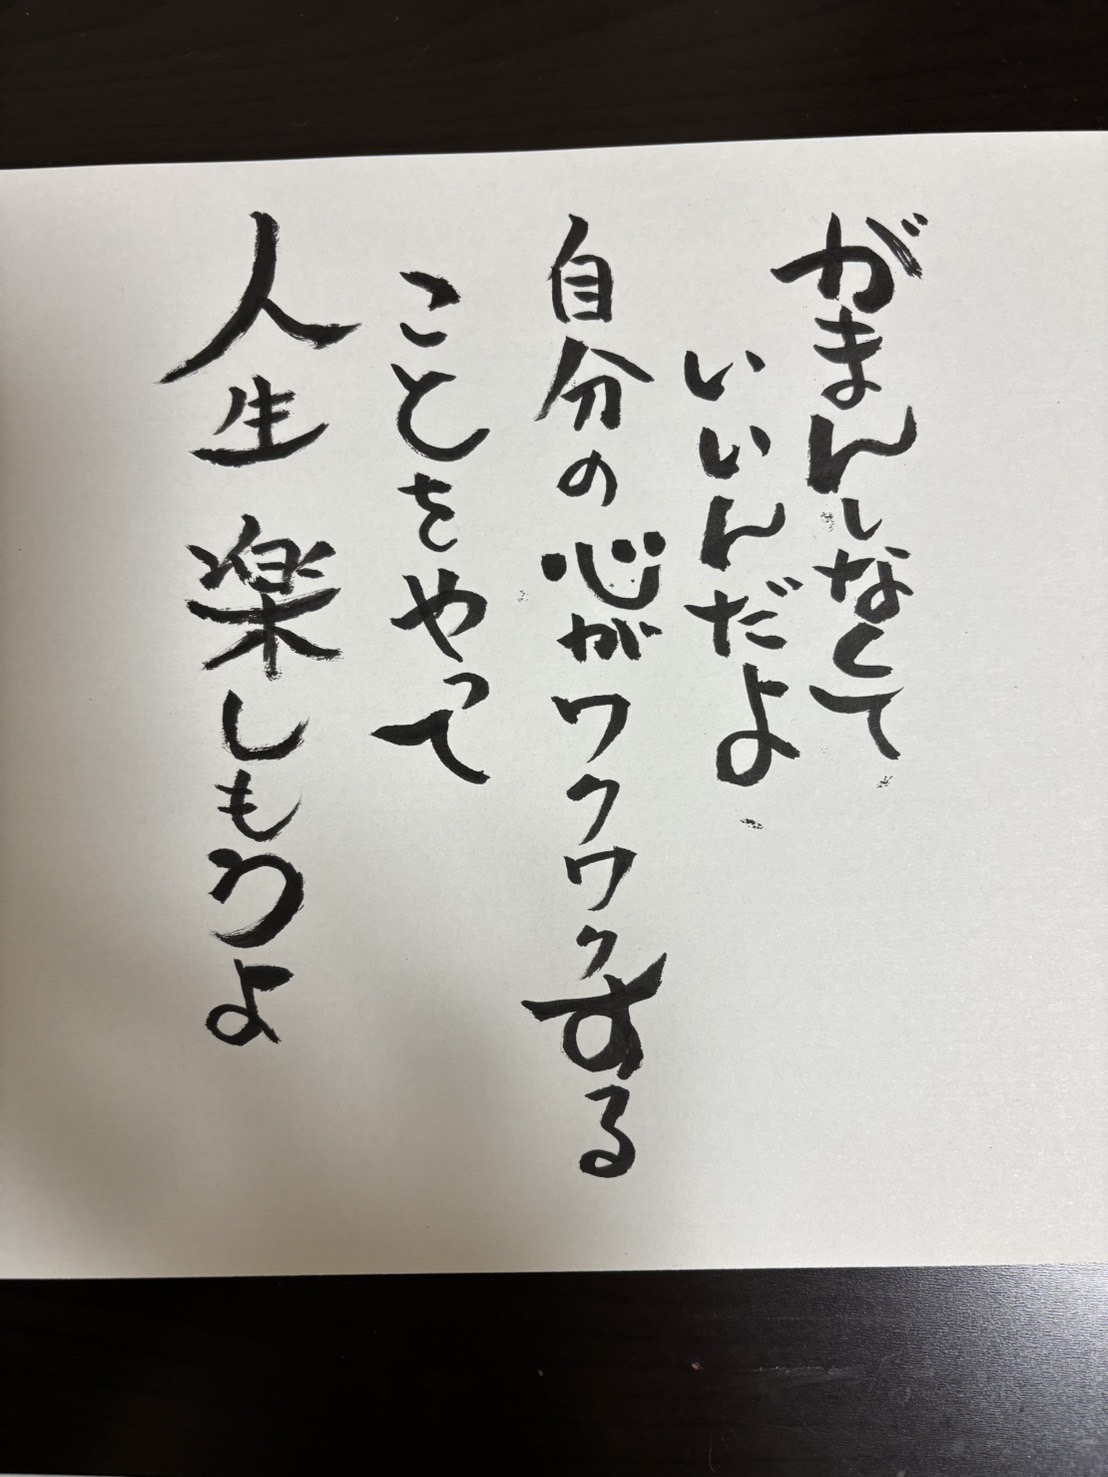 がまんしなくて
いいんだよ
自分の心がワクワクする
ことをやって
人生楽しもうよ